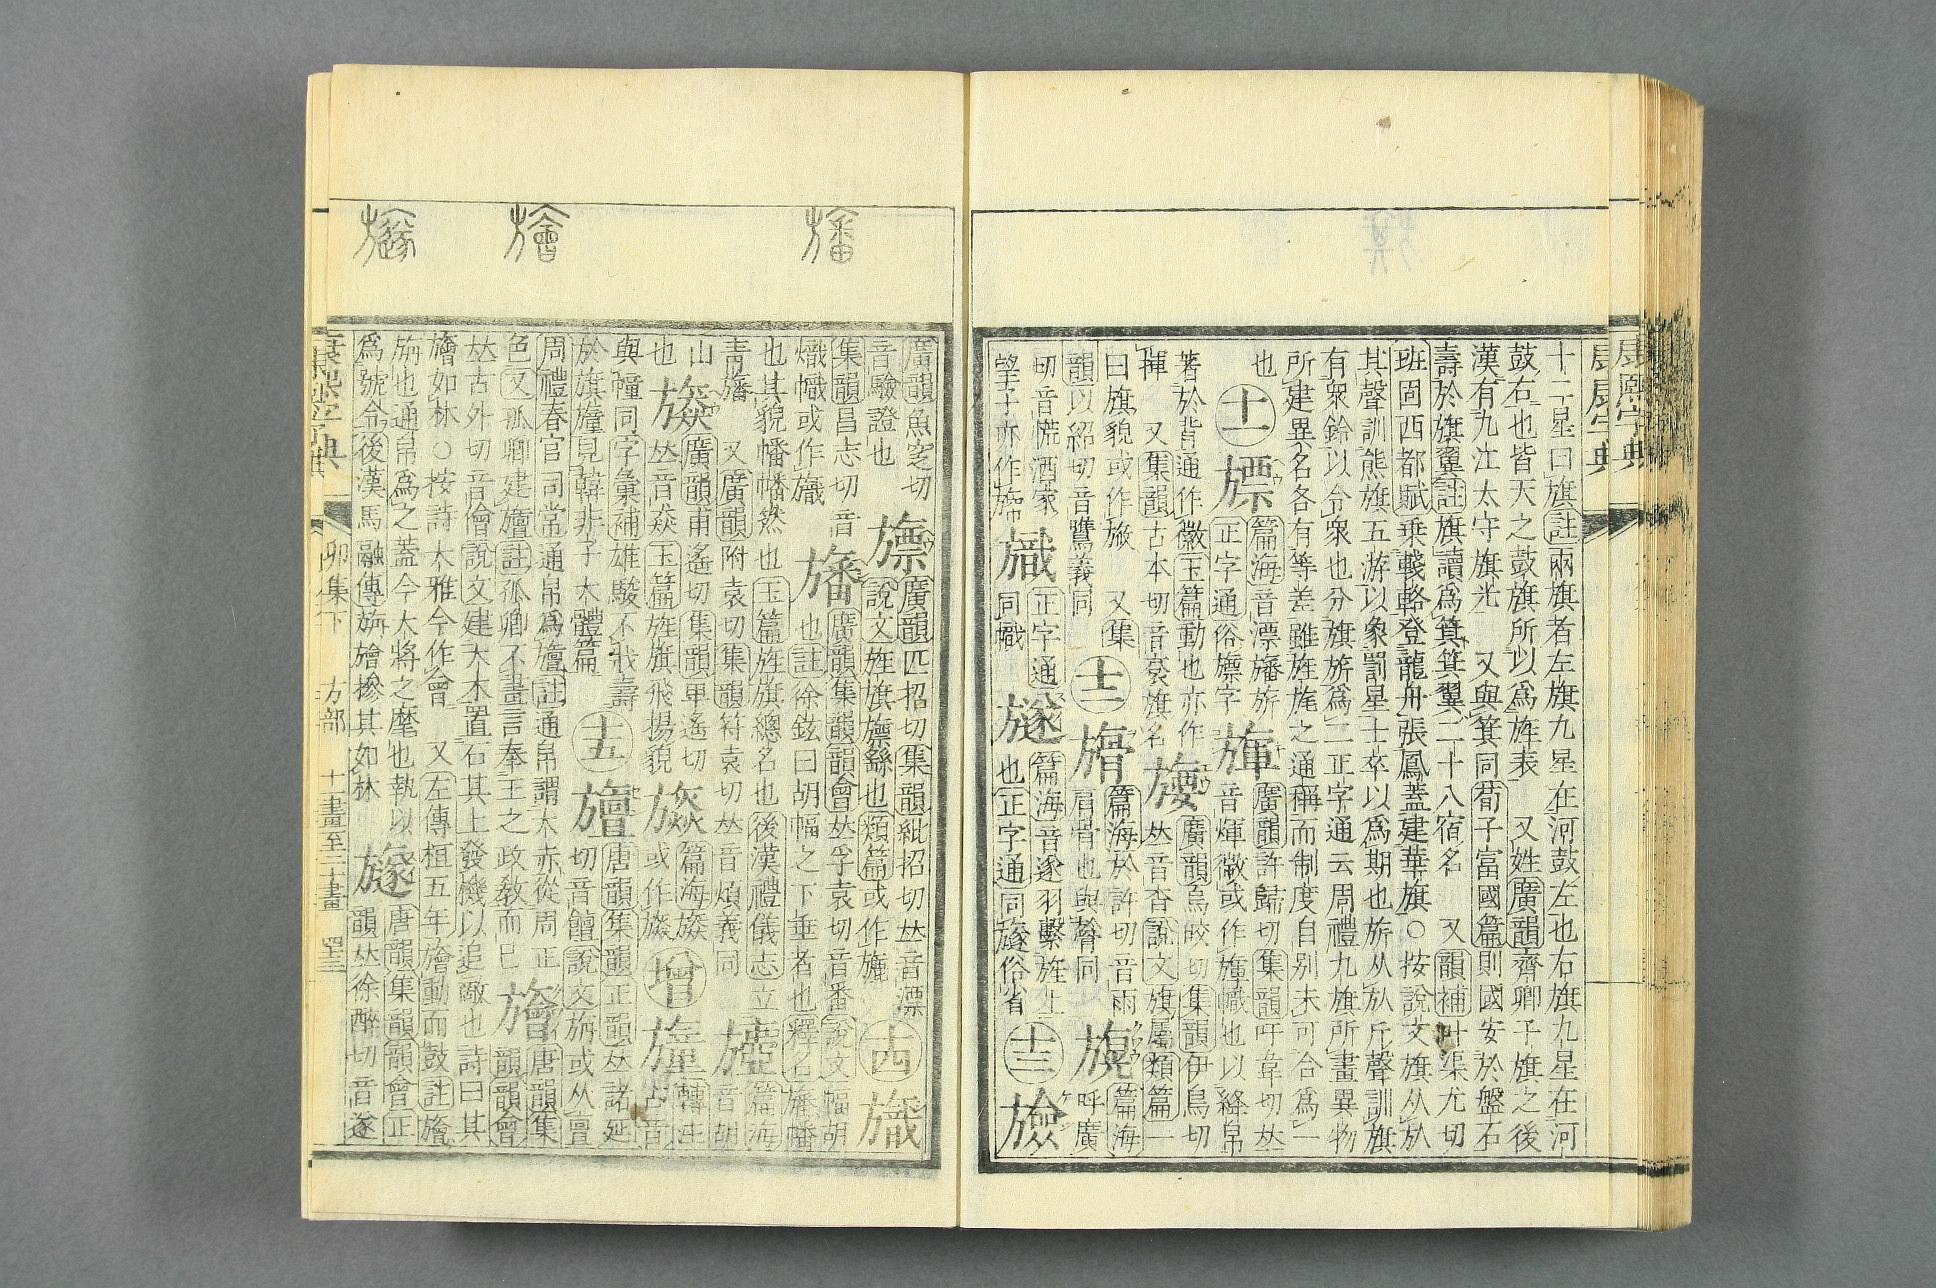 康熙字典
十二星曰旗註兩旗者左旗九星在河鼓左也右旗九星在河
鼓右也皆天之鼓旗所以爲旌表 又姓廣韻齊卿子旗之後
漢有九江太守旗光 又與箕同荀子富國篇則國安於盤石
壽於旗翼註旗讀爲箕箕翼二十八宿名 又韻補叶渠尤切
班固西都賦乗輚輅登龍舟張鳳蓋建華旗○按說文旗从㫃
其聲訓熊旗五游以象罰星士卒以爲期也旂从㫃斤聲訓旗
有衆鈴以令衆也分旗旂爲二正字通云周禮九旗所畫異物
所建異名各有等差雖旌旄之通稱而制度自别未可合爲一
也
著於背通作徽玉篇動也亦作
揮 又集韻古本切音袞旗名
曰旗貌或作
韻以紹切音鷕義同 又集
切音慌酒家
望子亦作
十一 旚 正字通俗旚字
篇海音漂旛旂
音煇徽或作
幟也以絳帛
廣韻許歸切集韻吁韋切𠀤
廣韻烏皎切集韻伊鳥切
𠀤音杳說文旗屬類篇一
十二
篇海於許切音雨
肩骨也與膂同
篇海
呼廣
正字通
同幟
篇海音遂羽繫旌上
也正字通同旞俗省
十三
廣韻魚窆切
音驗證也
旚 廣韻匹招切集韻紕招切𠀤音漂
說文旌旗旚繇也類篇或作
十四
集韻昌志切音
熾幟或作
旛 廣韻集韻韻會𠀤孚袁切音番說文幅胡
也註徐鉉曰胡幅之下垂者也釋名旛幡
也其貌幡幡然也玉篇旌旗總名也後漢禮儀志立
靑旛 又廣韻附袁切集韻符袁切𠀤音煩義同
篇海
音胡
山
也
廣韻甫遙切集韻卑遙切
𠀤音猋玉篇旌旗飛揚貌
篇海
或作
增
轉注
古音
與幢同字彙補雄駿不我壽
於旗幢見韓非子大體篇
十五 旜 唐韻集韻正韻𠀤諸延
切音饘說文旃或从亶
周禮春官司常通帛爲旜註通帛謂大赤從周正
色又孤卿建旜註孤卿不畫言奉王之政敎而已
旝 唐韻集
韻韻會
𠀤古外切音儈說文建大木置石其上發機以追敵也詩曰其
旝如林○按詩大雅今作會 又左傳桓五年旝動而鼓註旝
旃也通帛爲之蓋今大將之麾也執以
爲號令後漢馬融傳旃旝摻其如林
旞 唐韻集韻韻會正
韻𠀤徐醉切音遂
康熙字典 卯集下 方部 十一畫至二十畫